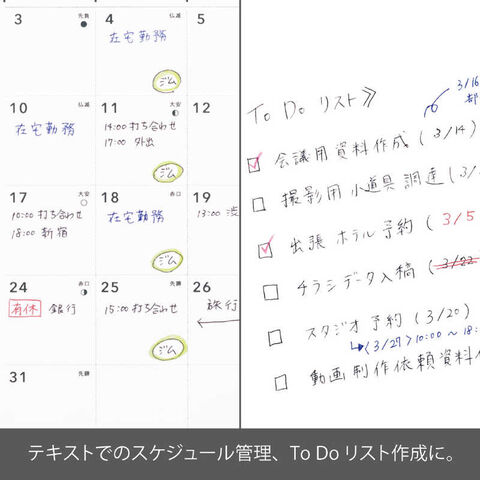 3 先負
4 仏滅
5
在宅勤務
ジム
10 仏滅
在宅勤務
11 大安
14:00 打ち合わせ
17:00 外出
ジム
12
17 大安
10:00 打ち合わせ
18:00 新宿
18 赤口
在宅勤務
ジム
19
13:00 渋
24 赤口
有休 銀行
25 先勝
15:00 打ち合わせ
ジム
26
旅行
31 先勝
3/16
都
To Do リスト》
会議用資料作成 (3/14)
撮影用 小道具 調達 (3/
出張 ホテル 予約 (3/5
チラシデータ入稿 (3/22
スタジオ 予約 (3/20)
(3/27) 10:00 ~ 18:
動画制作依頼資料
テキストでのスケジュール管理、To Do リスト作成に。